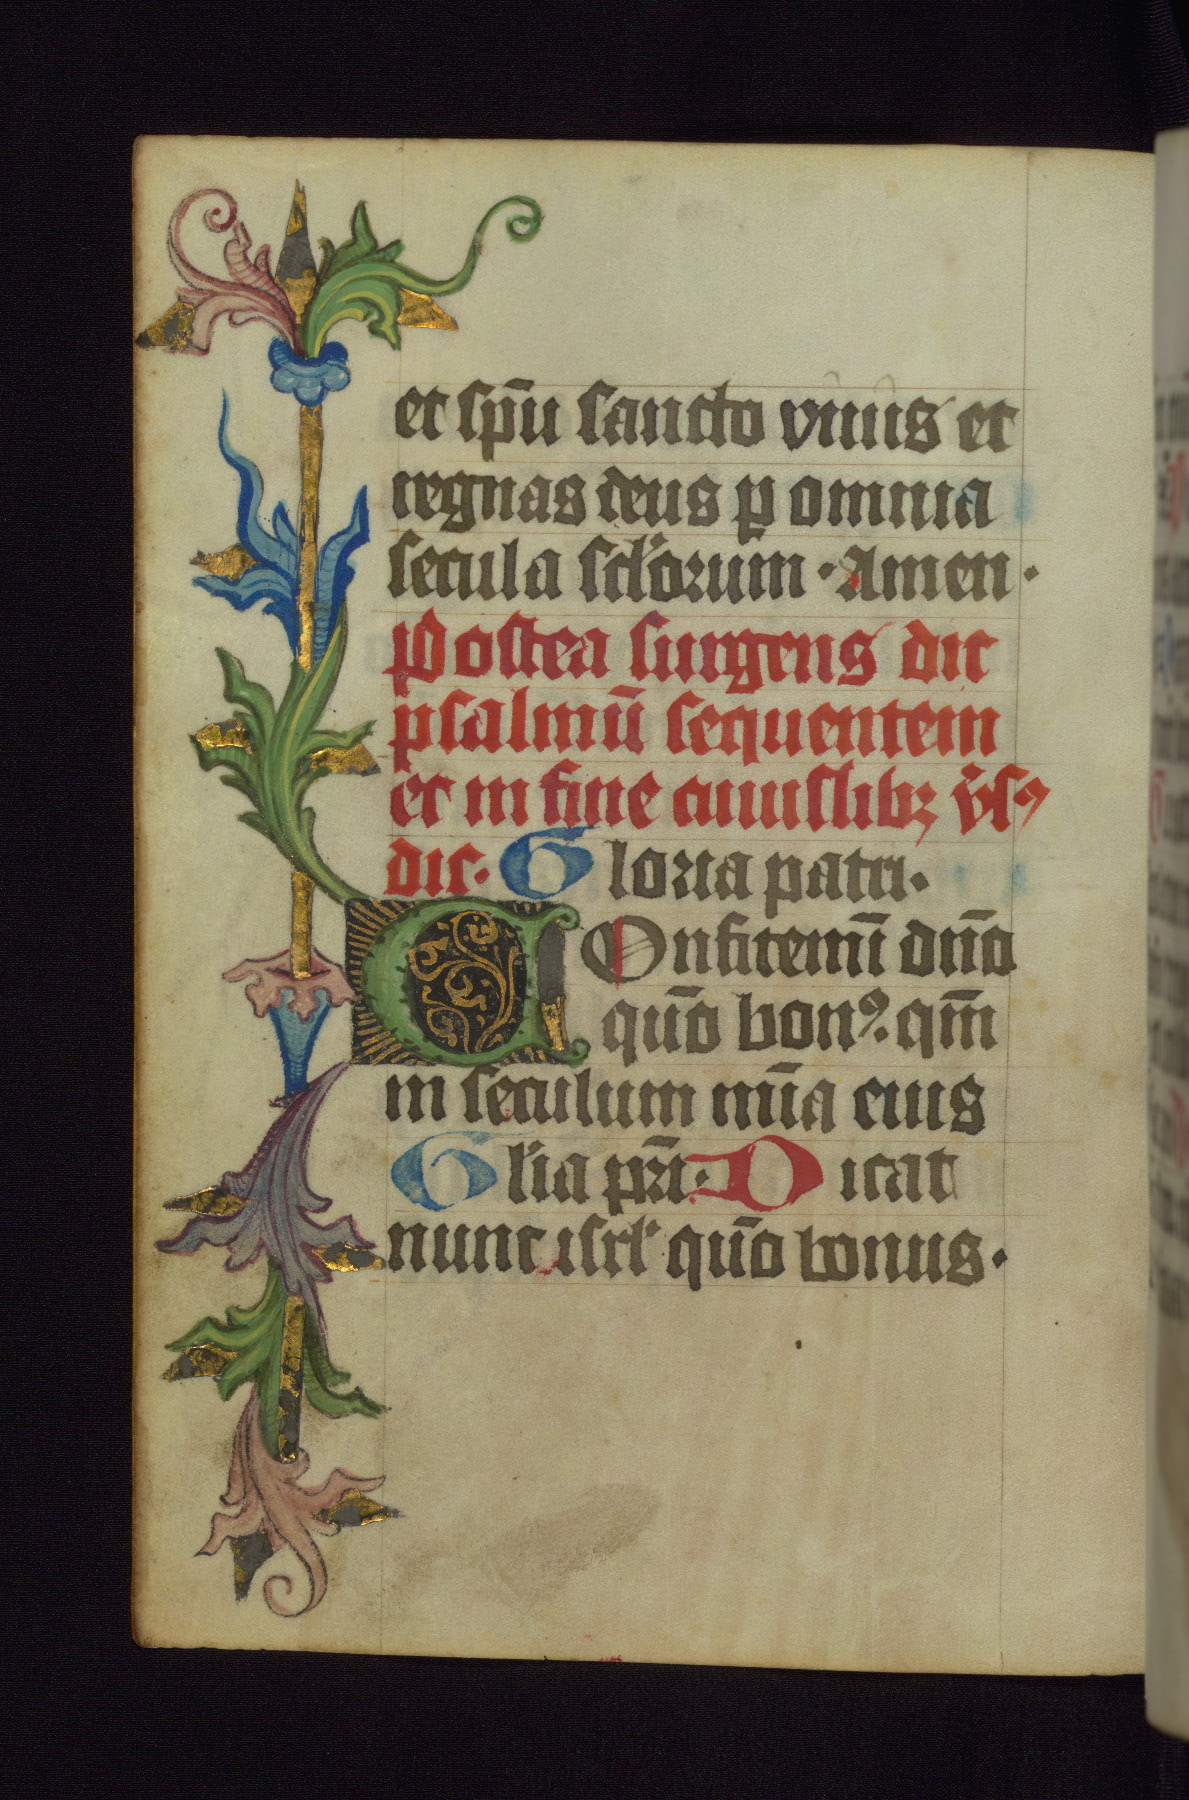 et sp̄u sancto viuis et
regnas deus ꝑ omnia
secula scl̓orum · Amen ·
Postea surgens dic
psalmū sequentem
et in fine cuiuslibꝫ v̓sꝯ
dic · Gloria patri ·
COnfitemī dn̄o
qūo bonꝯ · qm̄
in seculum mīa eius
Gl̓ia pr̄i · Dicat
nunc isrl̓ qūo bonus ·